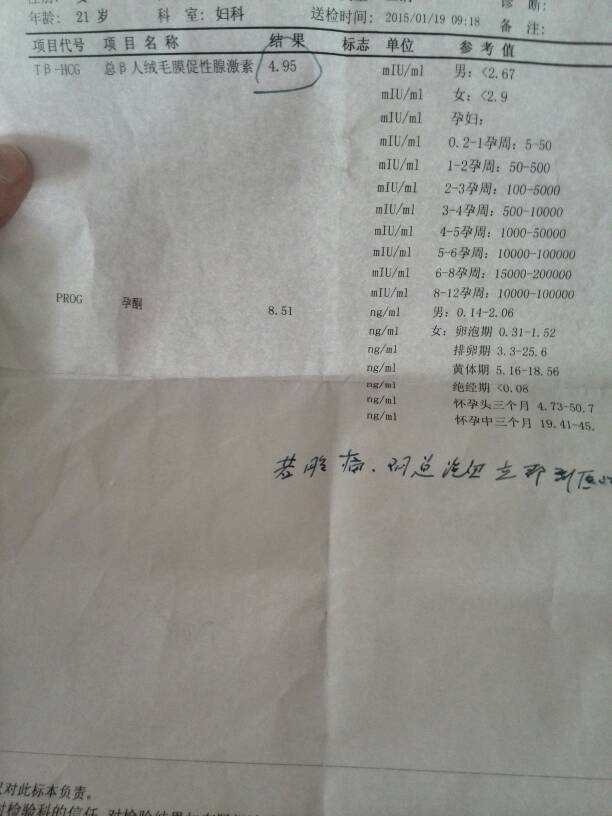 年龄: 21 岁 科 室: 妇科 送检时间: 2015/01/19 09:18 备 注:
诊 断:
项目代号 项 目 名 称 结 果 标志 单位 参 考 值
TB-HCG 总β人绒毛膜促性腺激素 4.95 mIU/ml 男: <2.67
mIU/ml 女: <2.9
mIU/ml 孕妇:
mIU/ml 0.2-1孕周: 5-50
mIU/ml 1-2孕周: 50-500
mIU/ml 2-3孕周: 100-5000
mIU/ml 3-4孕周: 500-10000
mIU/ml 4-5孕周: 1000-50000
mIU/ml 5-6孕周: 10000-100000
mIU/ml 6-8孕周: 15000-200000
mIU/ml 8-12孕周: 10000-100000
PROG 孕酮 8.51 ng/ml 男: 0.14-2.06
ng/ml 女: 卵泡期 0.31-1.52
ng/ml 排卵期 3.3-25.6
ng/ml 黄体期 5.16-18.56
ng/ml 绝经期 <0.08
ng/ml 怀孕头三个月 4.73-50.7
ng/ml 怀孕中三个月 19.41-45.
若腹痛.阴道流血立即到医
对此标本负责。